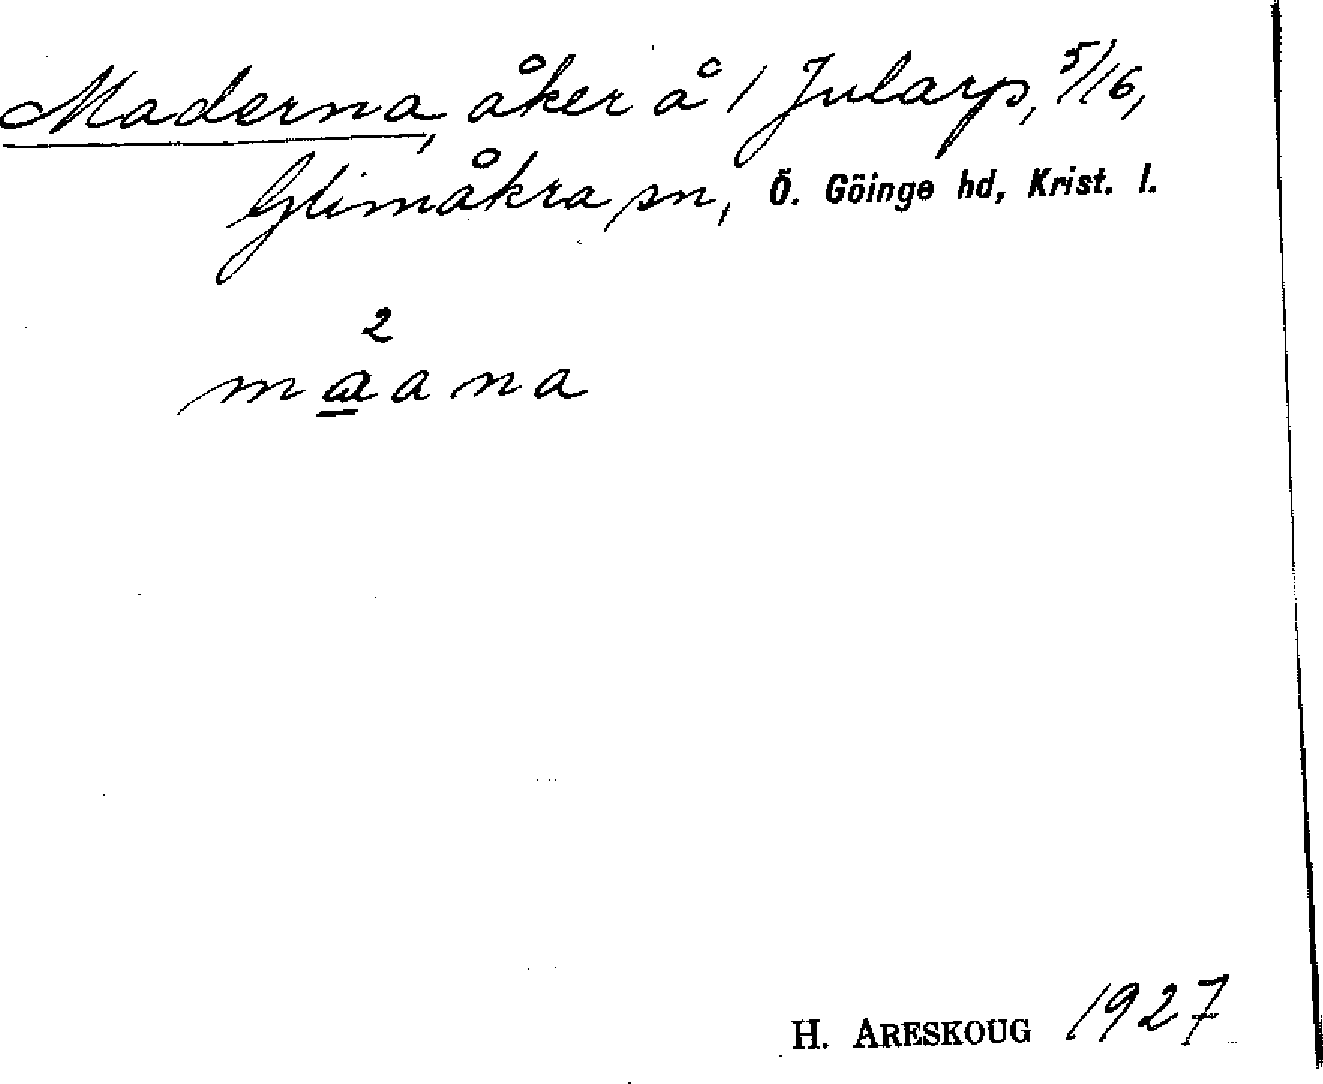 Maderna, åker å 1 Jularp, 5/16,
Glimåkra sn, Ö. Göinge hd, Krist. l.
2
maana
H. ARESKOUG 1927